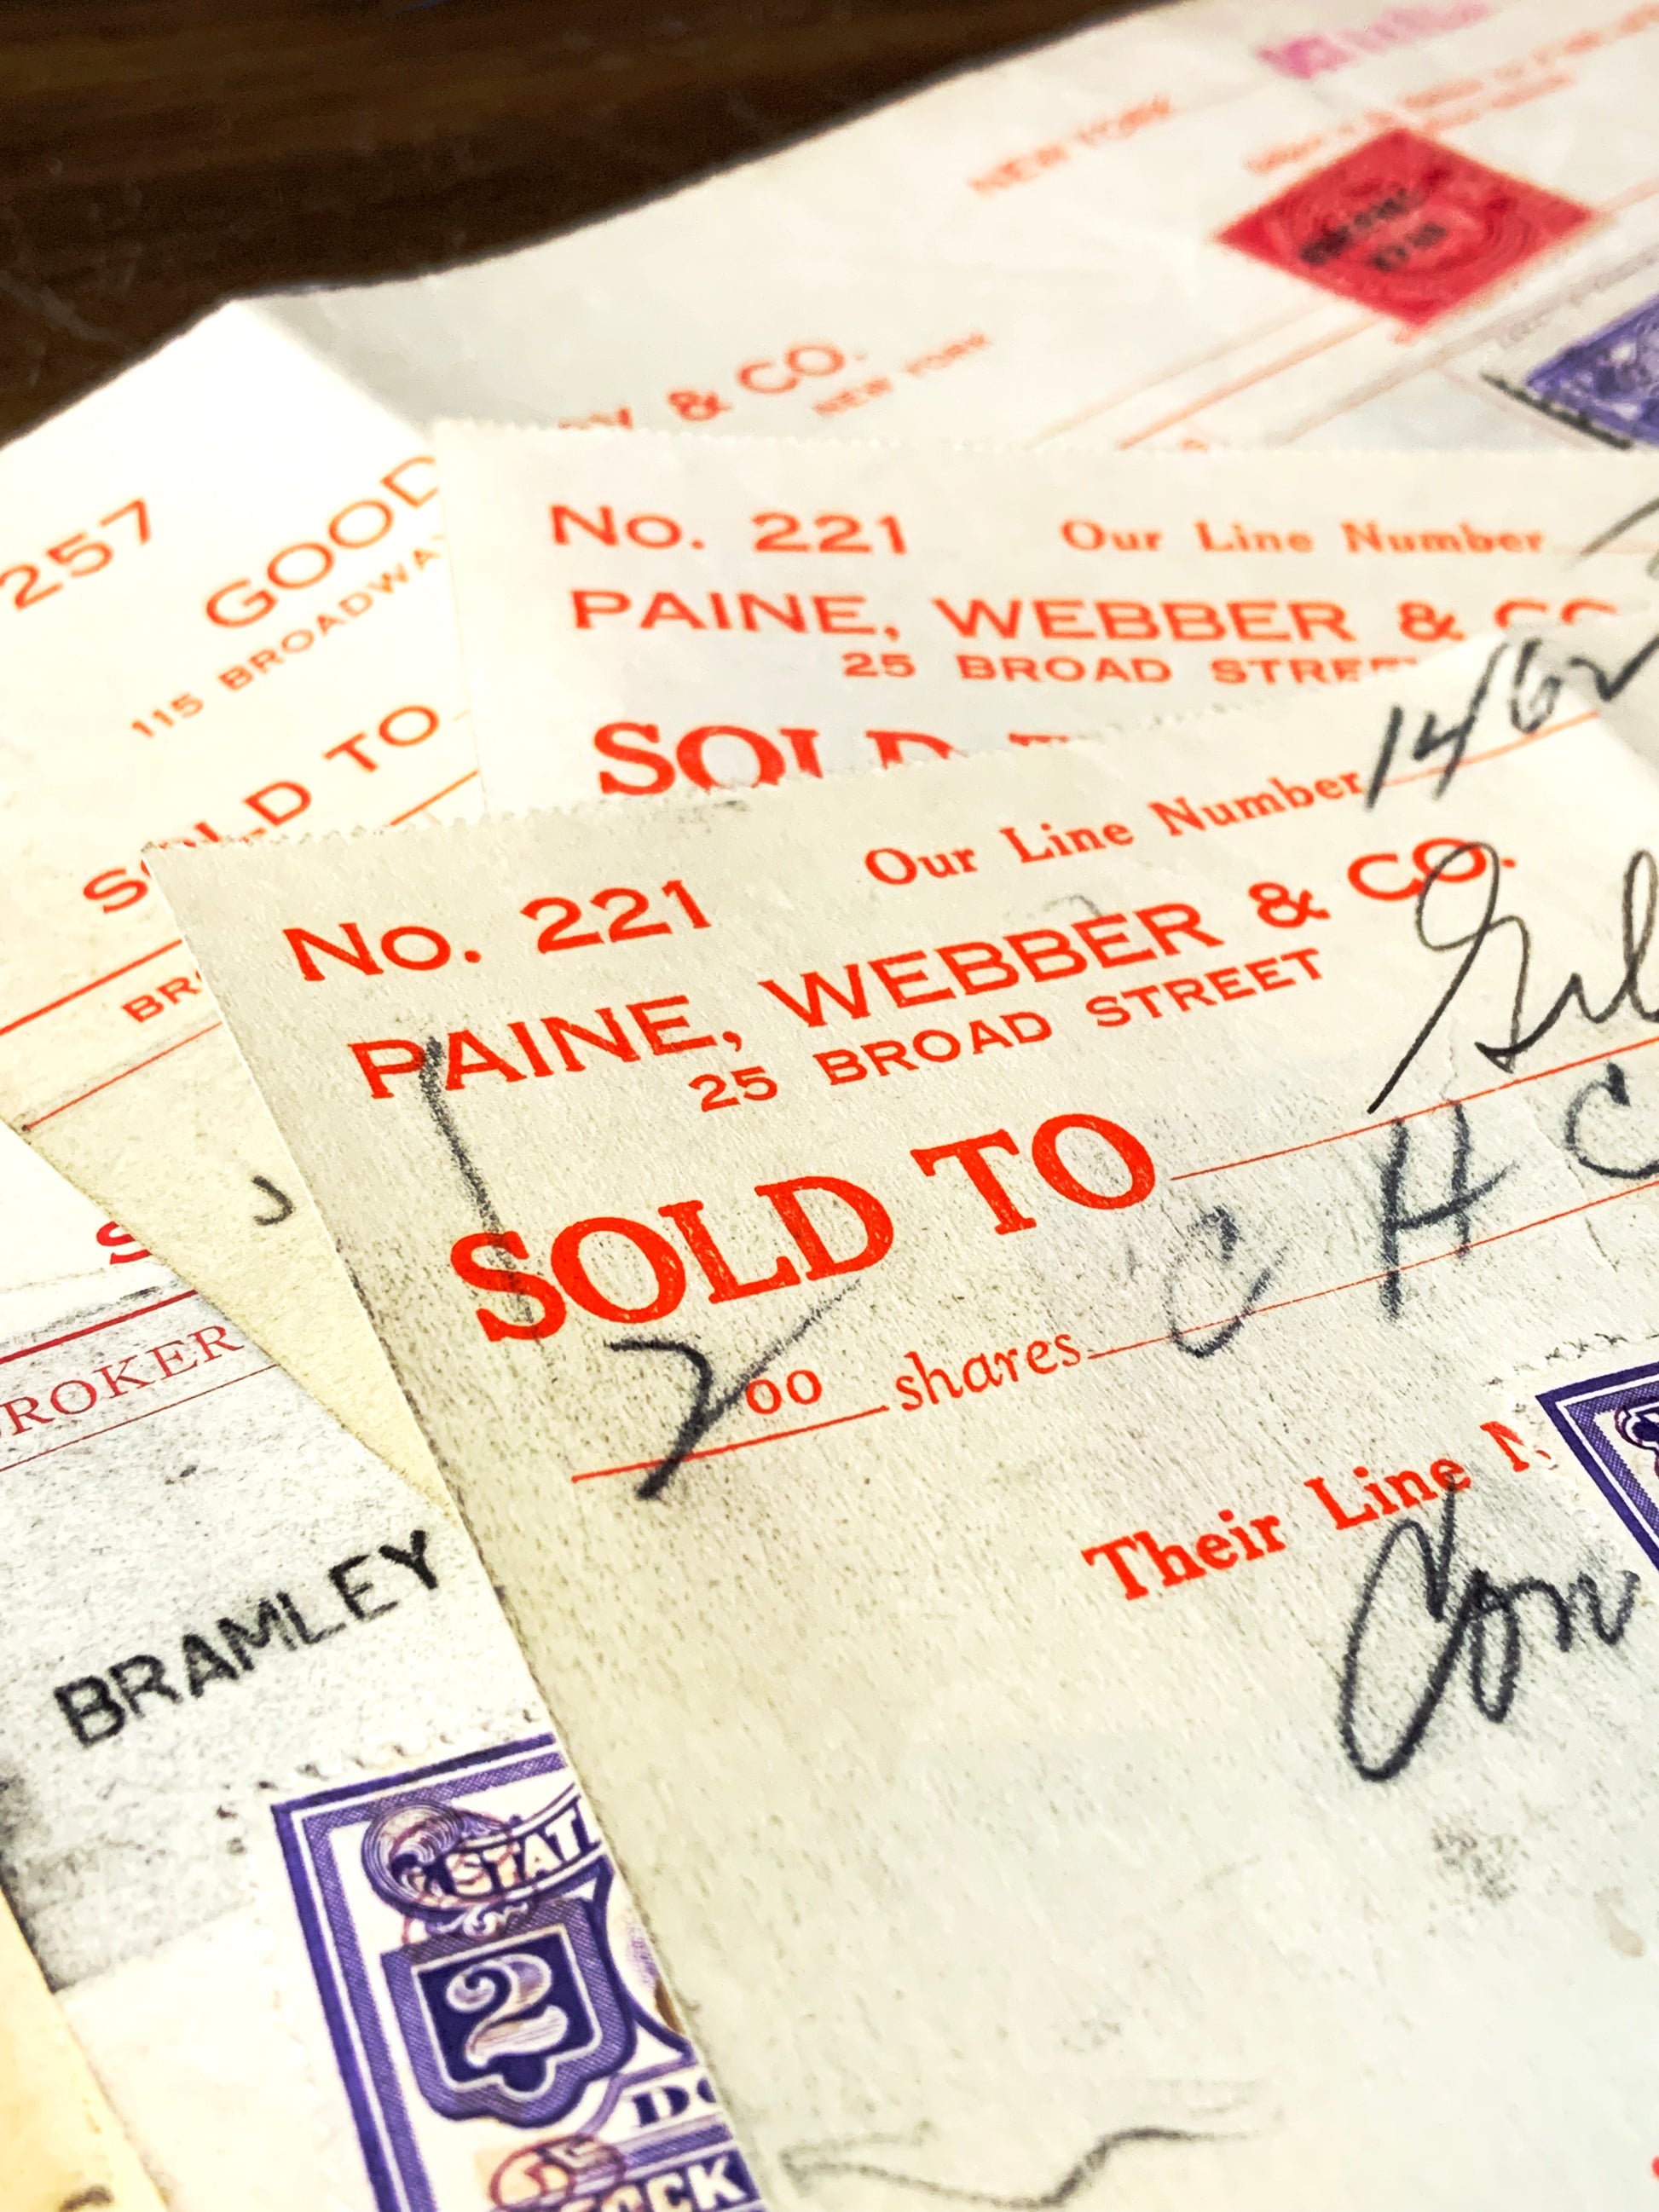 NEW YORK
& CO.
NEW YORK
257
GOOD
115 BROADWA
SOLD TO
No. 221 Our Line Number
PAINE, WEBBER & CO
25 BROAD STREET
SOLD
No. 221 Our Line Number 1462
PAINE, WEBBER & CO.
25 BROAD STREET
SOLD TO
200 shares C H C
Their Line N
Com
BR
J
S
ROKER
BRAMLEY
STAT
2
DO
OCK